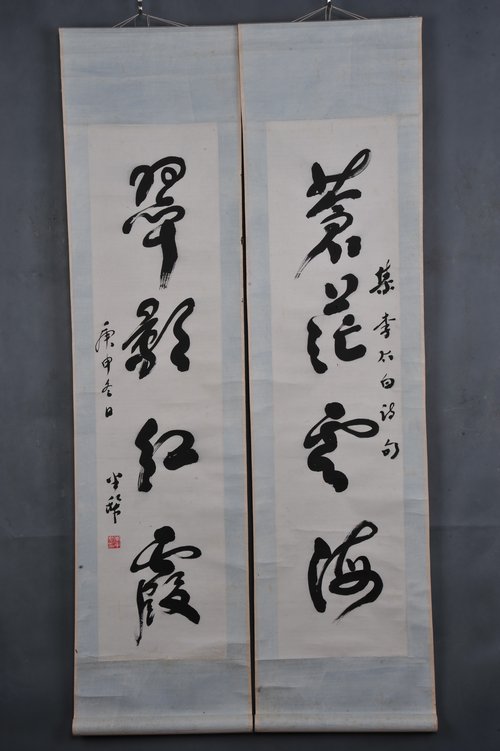 集李太白詩句
蒼茫雲海
翠影紅霞
庚申冬日